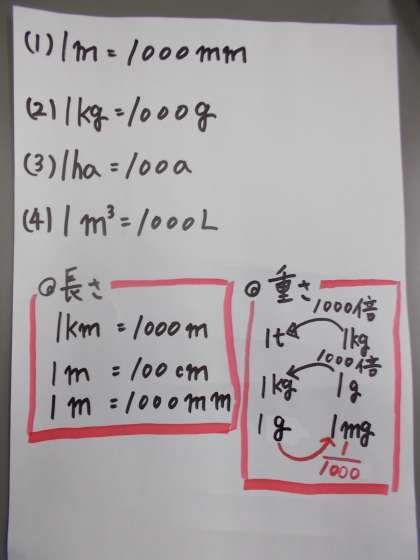 (1) 1m = 1000mm
(2) 1kg = 1000g
(3) 1ha = 100a
(4) 1m³ = 1000L
◎長さ
1km = 1000m
1m = 100cm
1m = 1000mm
◎重さ
1000倍
1t 1kg
1000倍
1kg 1g
1g 1mg
1/1000